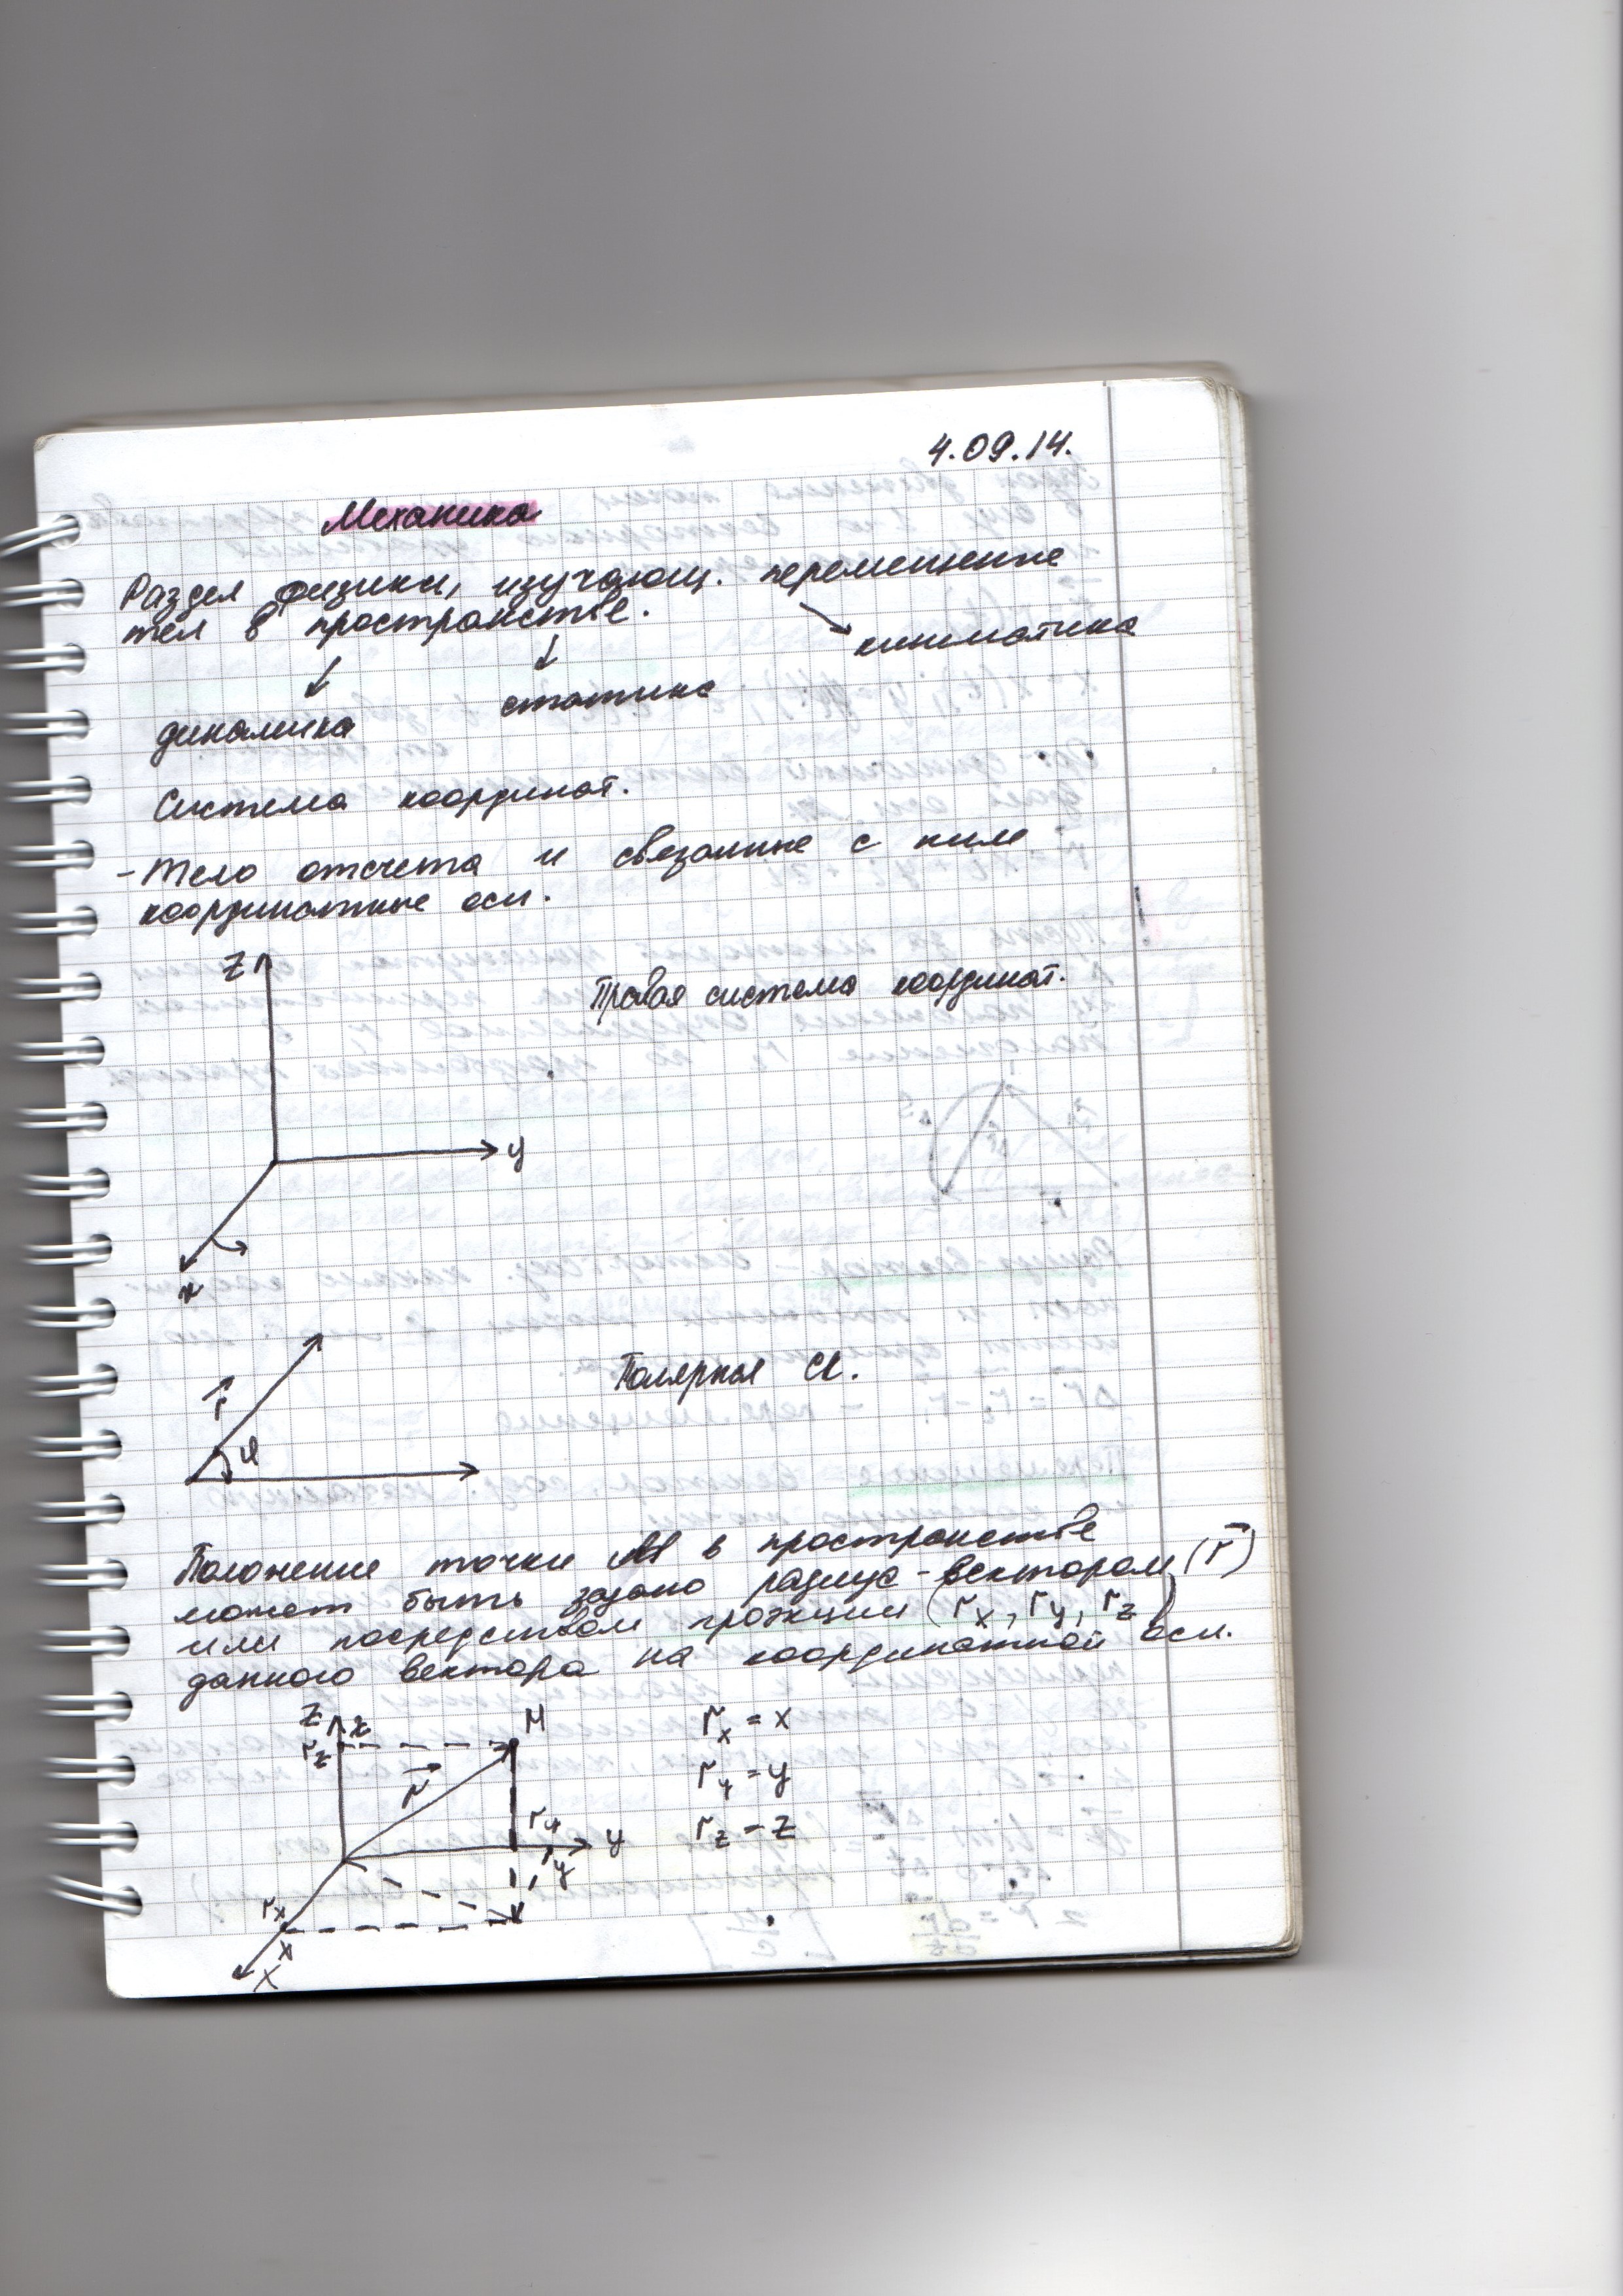 4.09.14.
Механика
Раздел физики, изучающ. перемещение
тел в пространстве.
кинематика
динамика
статика
Система координат.
- Тело отсчета и связанные с ним
координатные оси.
Z
Правая система координат.
y
x
r
φ
Полярная СК.
Положение точки М в пространстве
может быть задано радиус-вектором (r⃗)
или посредством проэкции (rx, ry, rz)
данного вектора на координатной оси.
Z z M rx = x
rz
r ry = y
ry y rz = z
y
rx
x
X